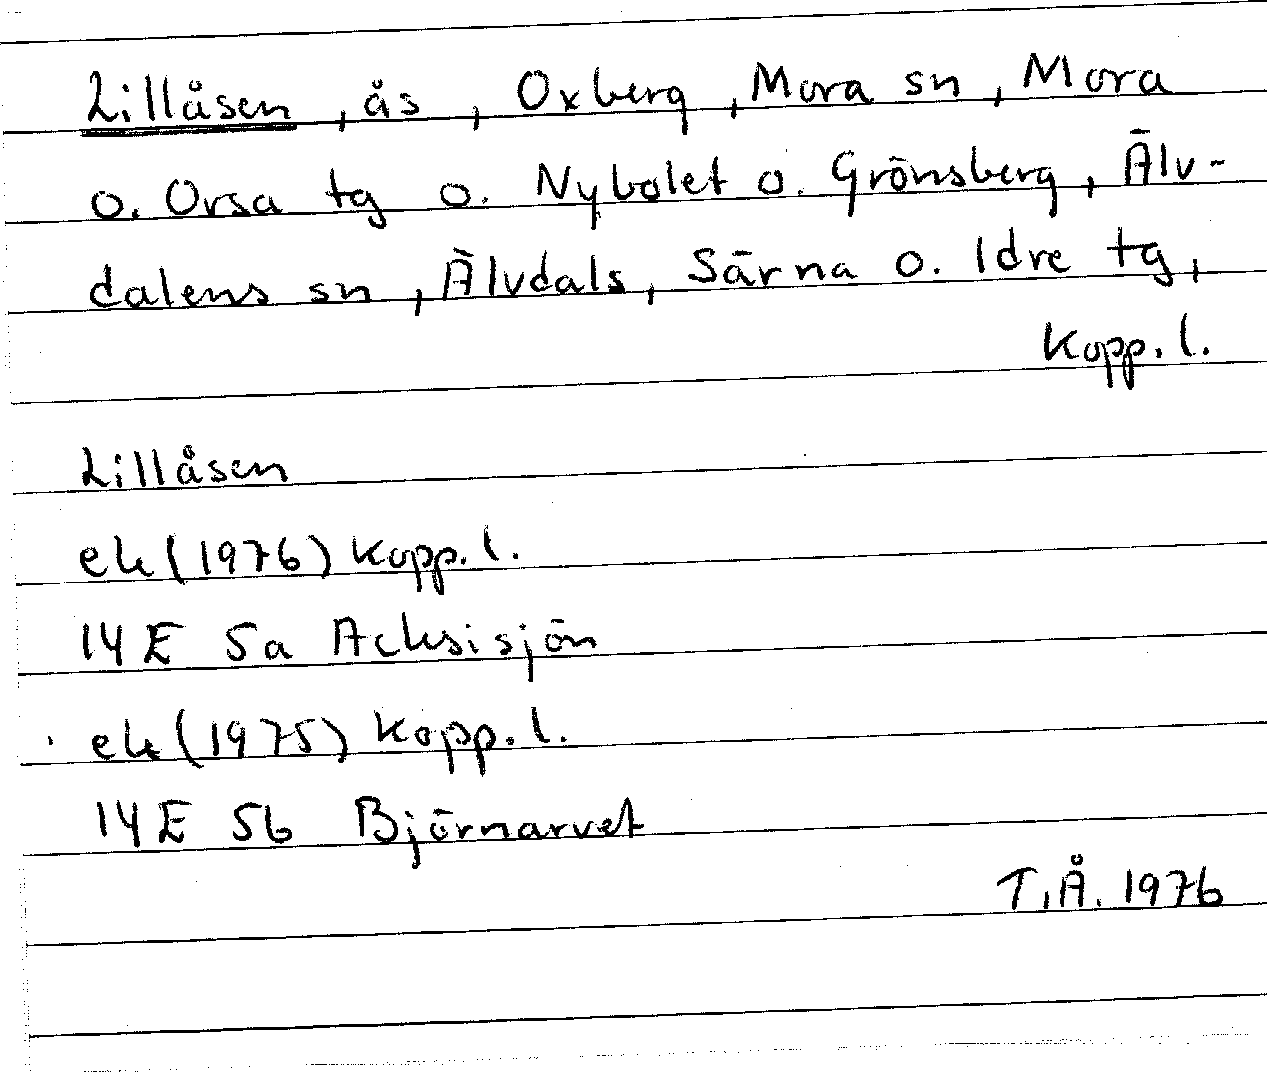 Lillåsen, ås, Oxberg, Mora sn, Mora
o. Orsa tg o. Nybolet o. Grönsberg, Älv-
dalens sn, Älvdals, Särna o. Idre tg,
Kopp. l.
Lillåsen
ek (1976) Kopp. l.
14 E 5a Acksisjön
ek (1975) Kopp. l.
14 E 5b Björnarvet
T.Å. 1976